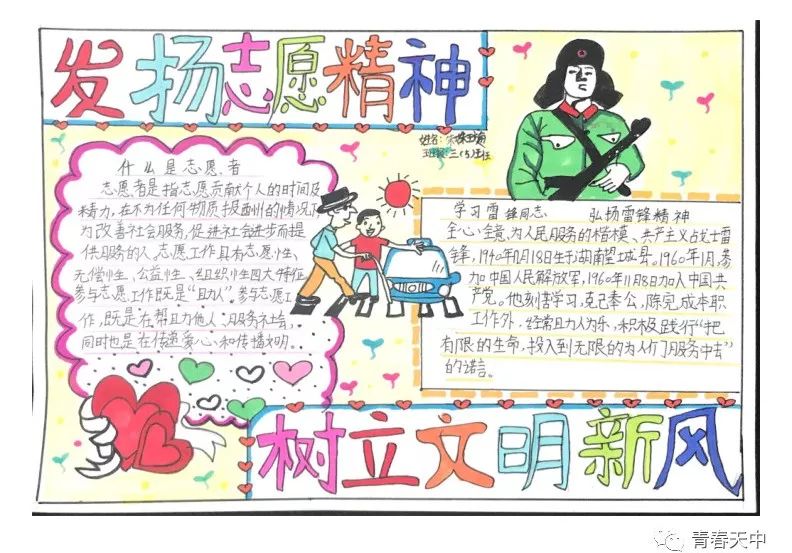 发扬志愿精神
姓名:
什么是志愿者
志愿者是指志愿贡献个人的时间及
精力,在不为任何物质报酬的情况下
为改善社会服务,促进社会进步而提
供服务的人,志愿工作具有志愿性、
无偿性、公益性、组织性四大特征
参与志愿工作既是“助人”,参与志愿工
作,既是在帮助他人、服务社会,
同时也是在传递爱心和传播文明。
学习雷锋同志 弘扬雷锋精神
全心全意为人民服务的楷模、共产主义战士雷
锋,1940年 月18日生于湖南望城县。1960年1月,参
加中国人民解放军,1960年11月8日加入中国共
产党。他刻苦学习,克己奉公,除完成本职
工作外,经常助人为乐,积极践行“把
有限的生命,投入到无限的为人们服务中去”
的诺言。
树立文明新风
青春天中